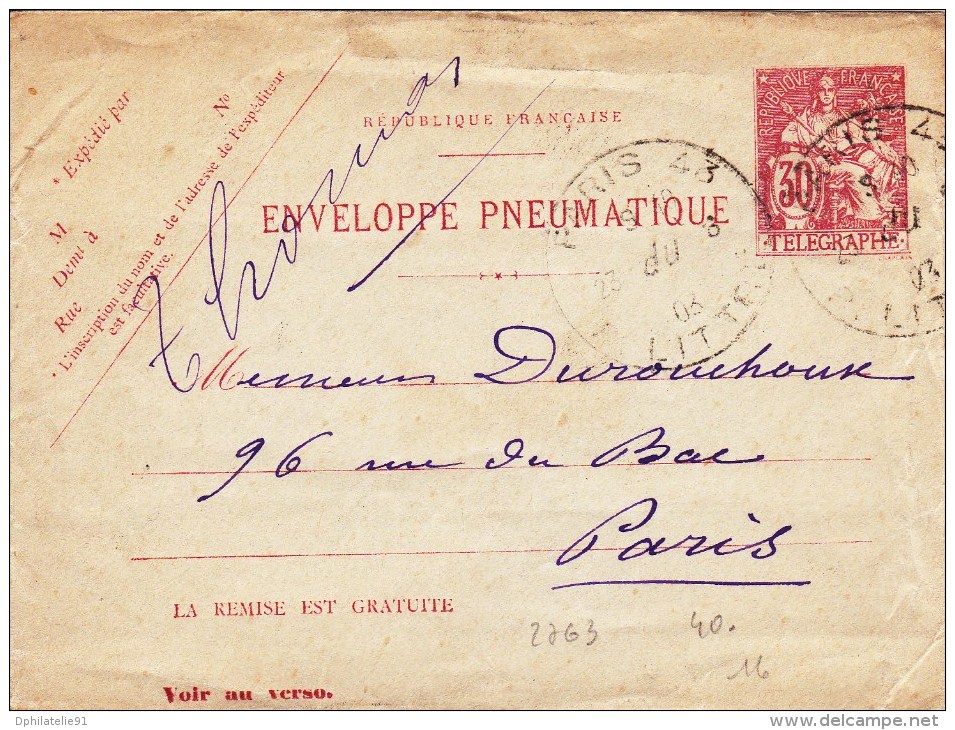 * Expédié par
M
N°
Demt à
Rue
* L'inscription du nom et de l'adresse de l'expéditeur
est facultative.
RÉPUBLIQUE FRANÇAISE
ENVELOPPE PNEUMATIQUE
REPUBLIQUE FRANCAISE
30
TELEGRAPHE
PARIS 43
23
03
PARIS 43
03
Monsieur Durouchoux
96 rue du Bac
Paris
LA REMISE EST GRATUITE
2763
40.
16
Voir au verso.
Dphilatelie91
www.delcampe.net